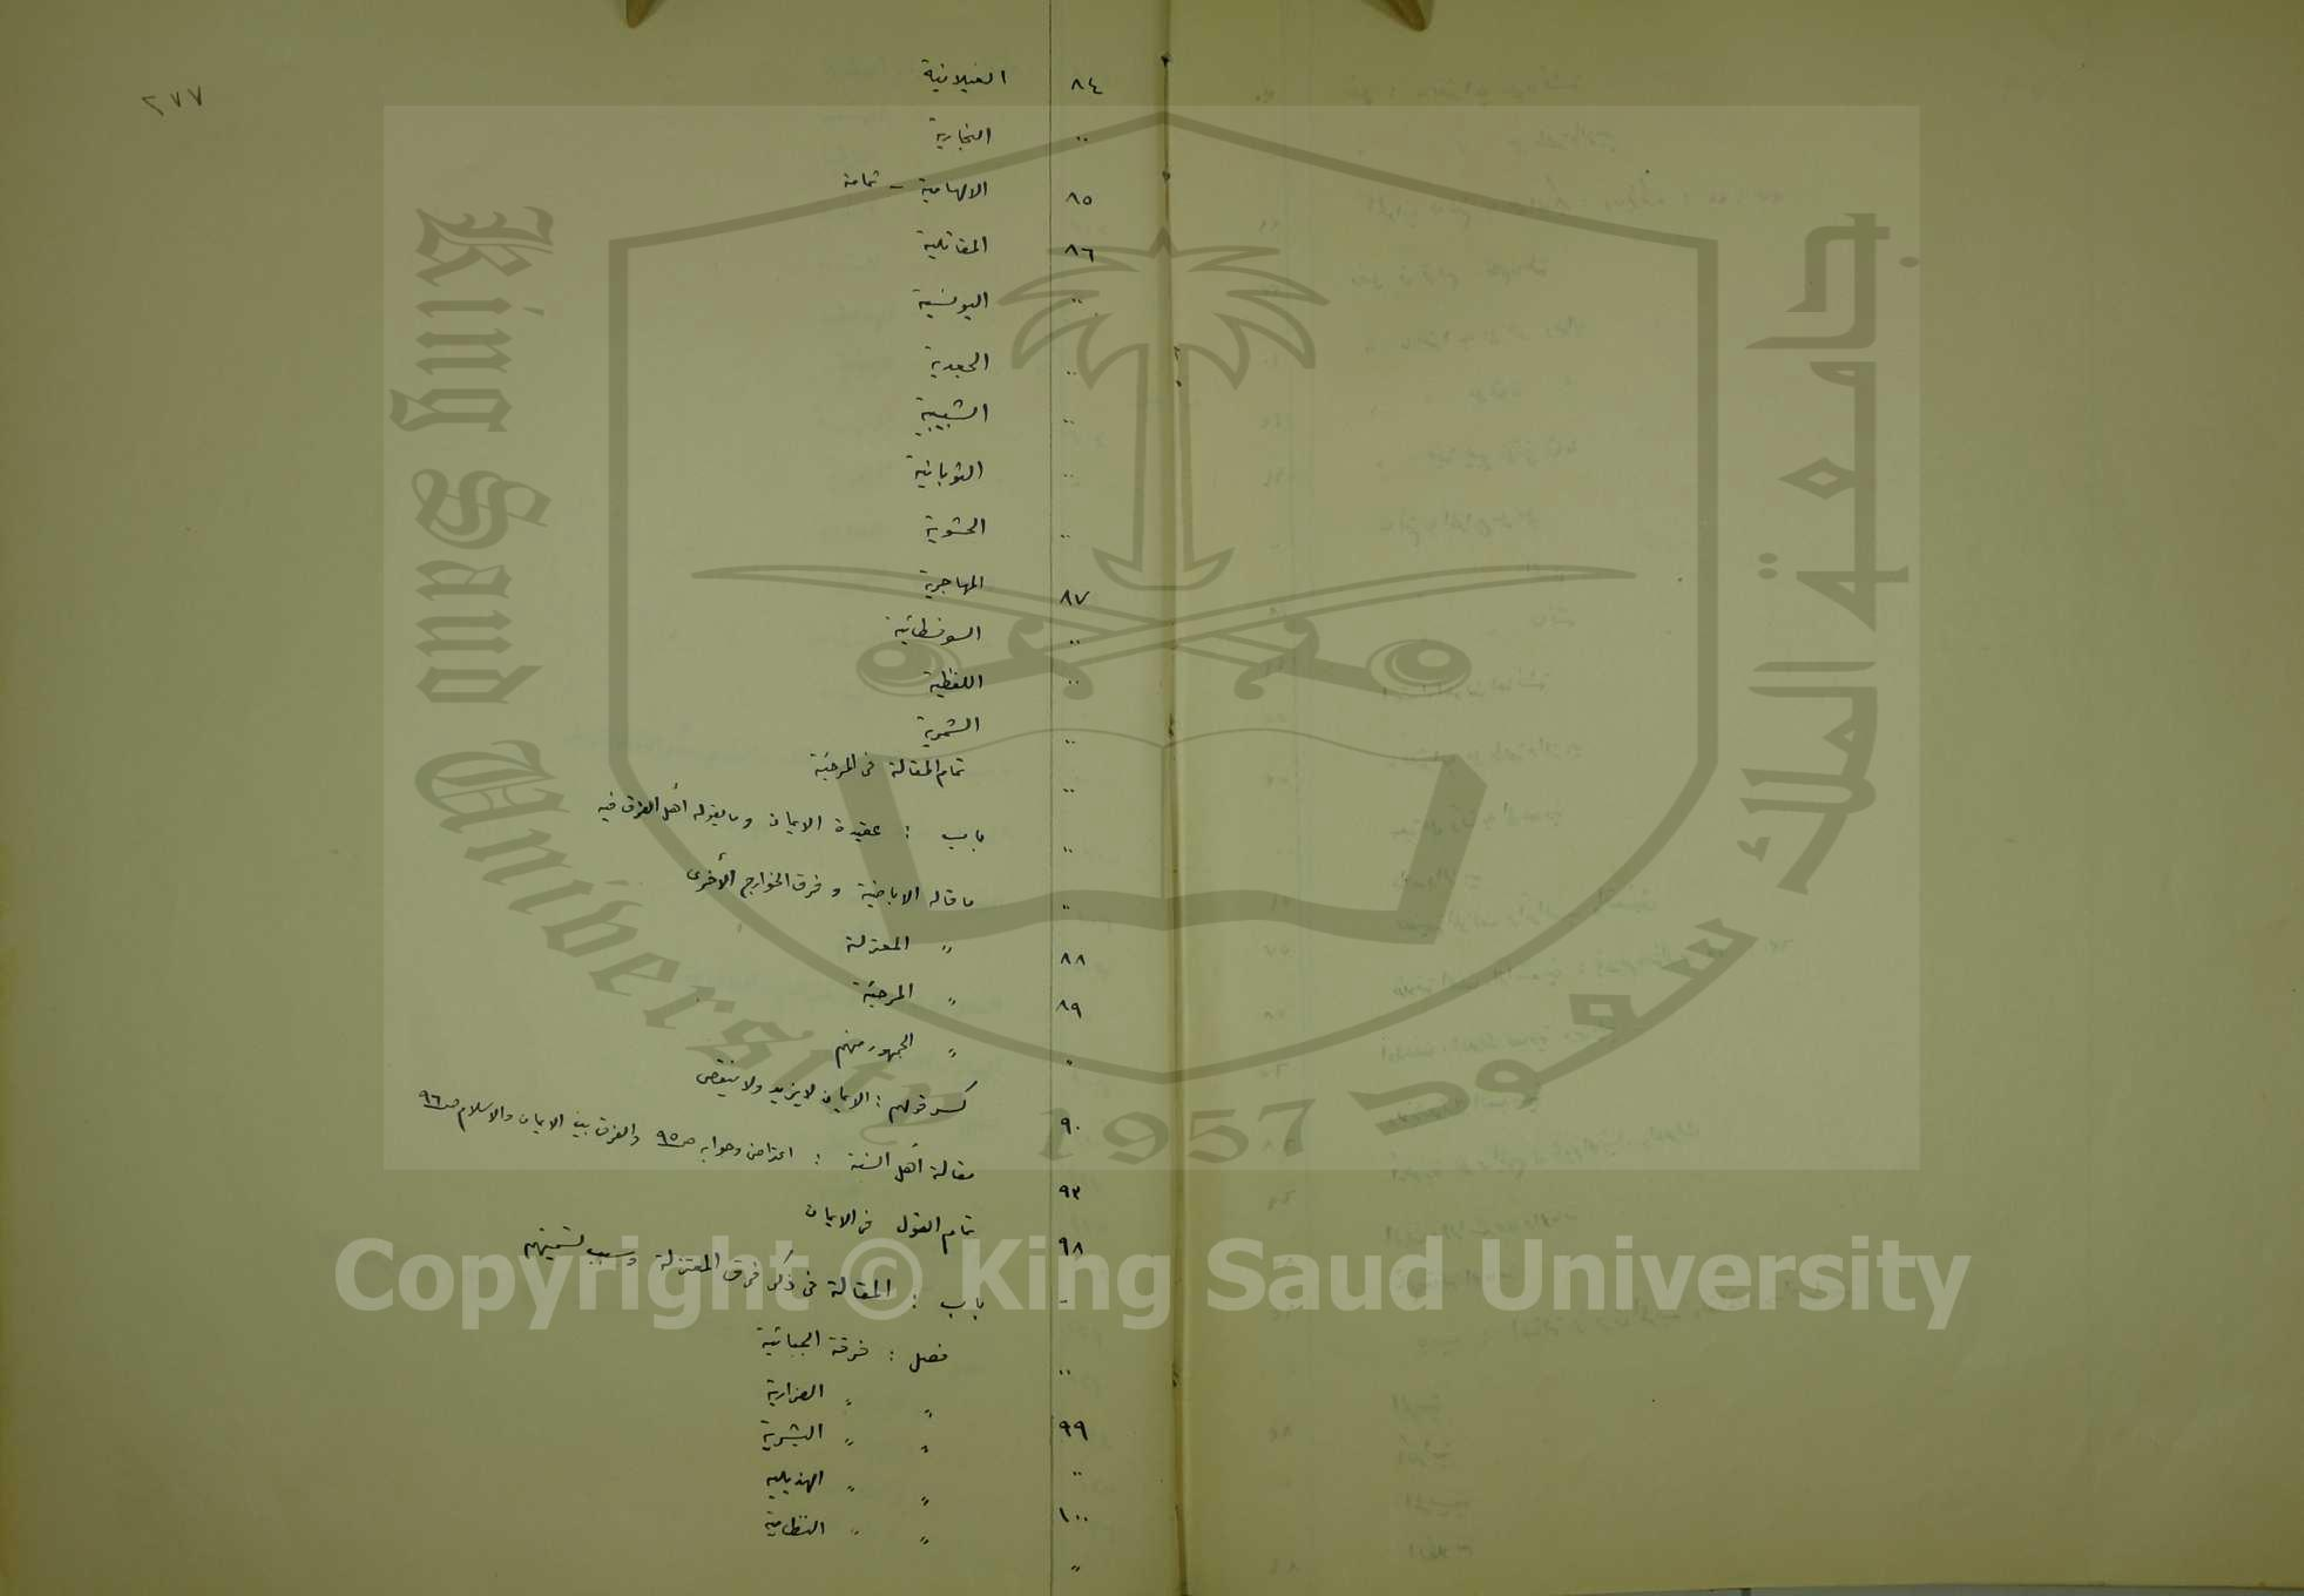 ٢٧٧
٨٤ الغيلانية
.. النجارية
٨٥ الالهامية - ثمامة
٨٦ المقاتلية
.. اليونسية
.. الجعدية
.. الشبيبية
.. الثوبانية
.. الحشوية
٨٧ المهاجرية
.. السوفسطائية
.. اللفظية
.. الشمرية
.. تمام المقالة فى المرجئة
.. باب : عقيدة الايمان وما يقوله أهل الفرق فيه
" ما قاله الاباضية و فرق الخوارج الأخرى
٨٨ " المعتزلة
٨٩ " المرجئة
" " الجمهور منهم
٩٠ كسر قولهم : الايمان لا يزيد ولا ينقص
٩٣ مقالة أهل السنة : اعتراض وجوابه ص ٩٥ والفرق بين الايمان والاسلام ص ٩٦
٩٨ تمام القول فى الايمان
- باب : المقالة فى ذكر فرق المعتزلة وسبب تسميتهم
.. فصل : فرقة الجبائية
٩٩ " " الضرارية
.. " " البشرية
١٠٠ " " الهذيلية
" " " النظامية
King Saud University
جامعة الملك سعود
1957
Copyright © King Saud University